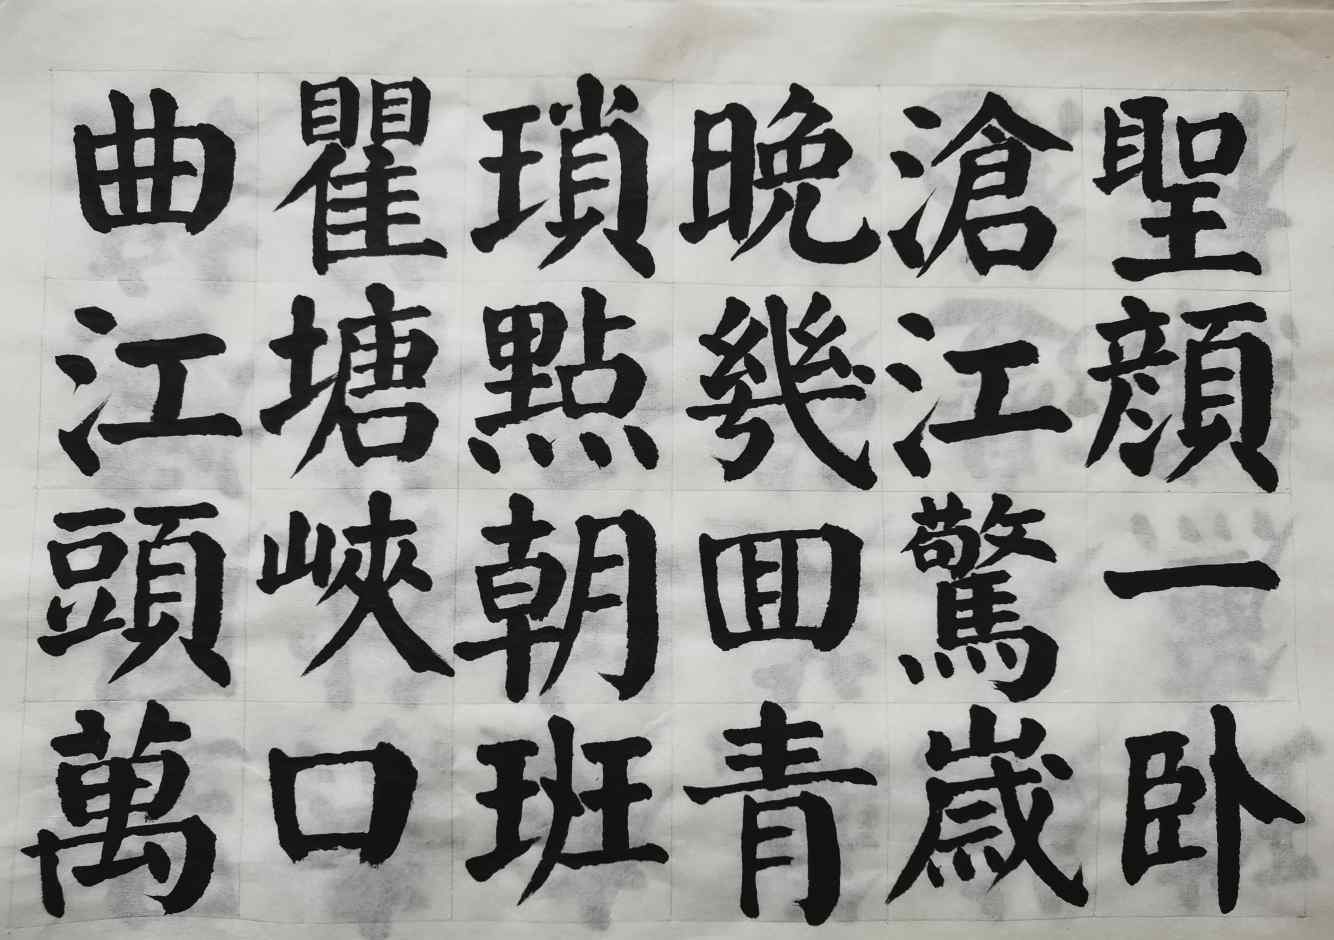 聖顔一卧
滄江驚歳
晩幾回青
瑣點朝班
瞿塘峽口
曲江頭萬